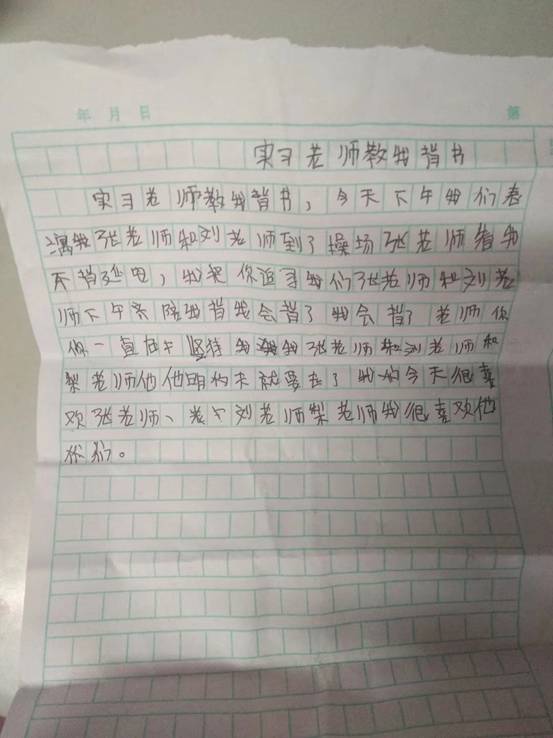 年 月 日 第
实习老师教我背书
实习老师教我背书，今天下午我们春
张老师和刘老师到了操场张老师看我
不背延电，你 我们张老师和刘老
师下午来陪我背我会背了我会背了老师你
你一直在 坚持我 我张老师和刘老师和
梨老师他他明 就要去了我 今天很喜
欢张老师、老 刘老师梨老师我很喜欢他
你们。